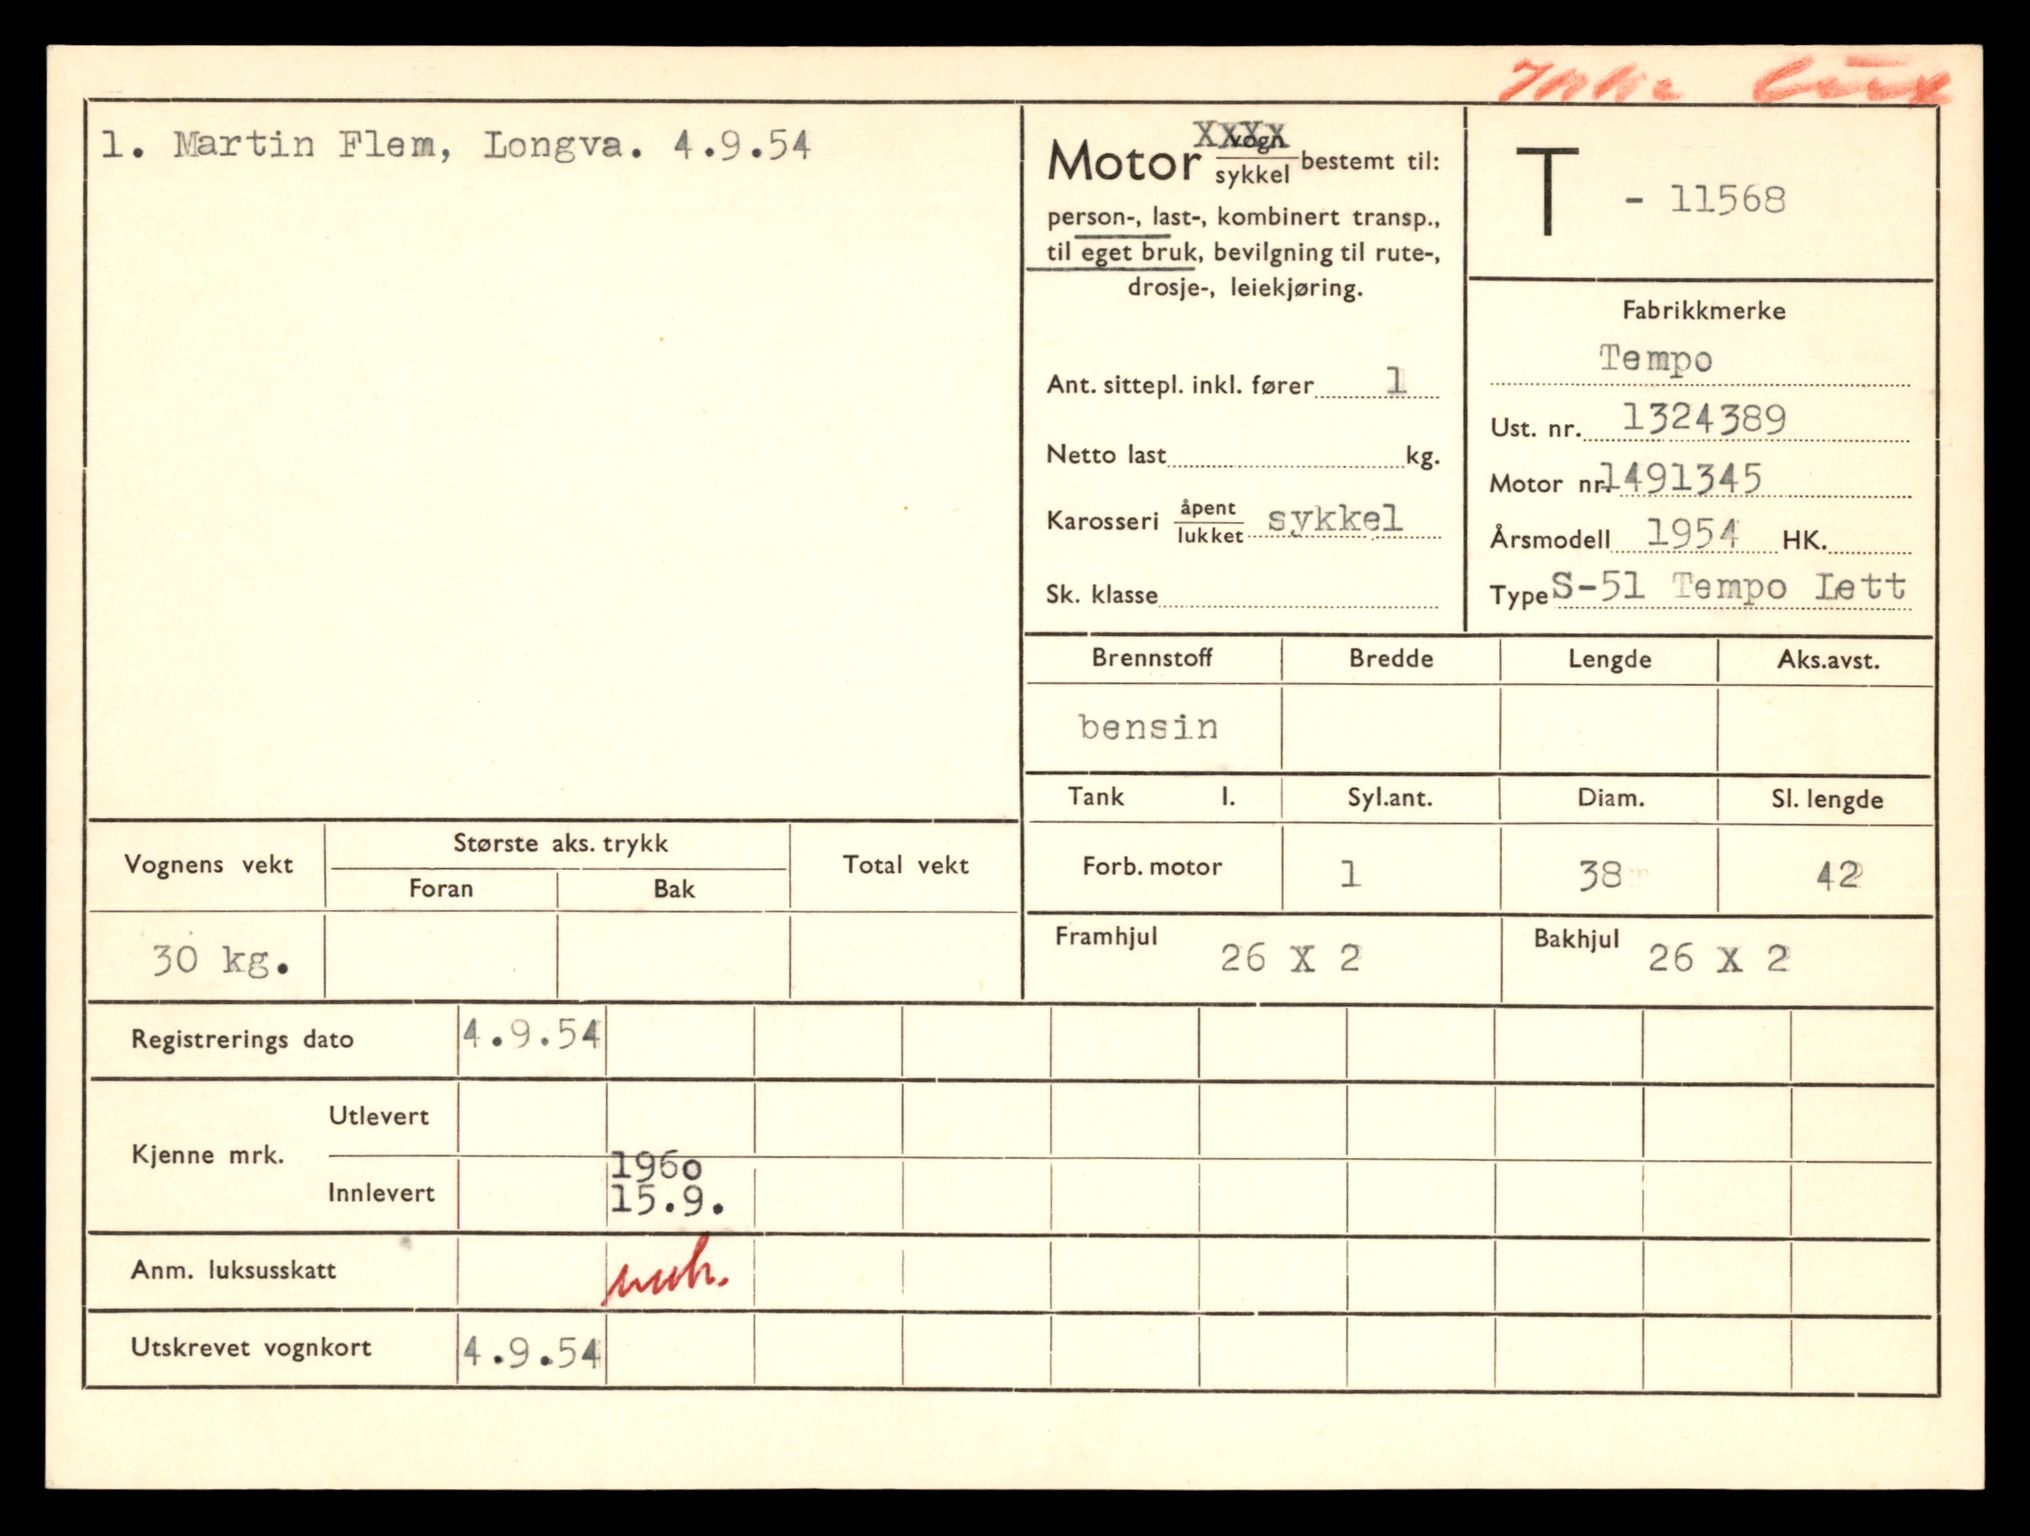 1. Martin Flem, Longva. 4.9.54
Motor vogn XXXX
sykkel bestemt til:
person-, last-, kombinert transp.,
til eget bruk, bevilgning til rute-,
drosje-, leiekjøring.
Ant. sittepl. inkl. fører 1
Netto last kg.
Karosseri åpent
lukket sykkel
Sk. klasse
T - 11568
Fabrikkmerke
Tempo
Ust. nr. 1324389
Motor nr. 1491345
Årsmodell 1954 HK.
Type S-51 Tempo Lett
Brennstoff Bredde Lengde Aks.avst.
bensin
Tank l. Syl.ant. Diam. Sl. lengde
Forb. motor 1 38 42
Framhjul 26 X 2 Bakhjul 26 X 2
Vognens vekt Største aks. trykk Total vekt
Foran Bak
30 kg.
Registrerings dato 4.9.54
Kjenne mrk. Utlevert
Innlevert 1960
15.9.
Anm. luksusskatt
Utskrevet vognkort 4.9.54